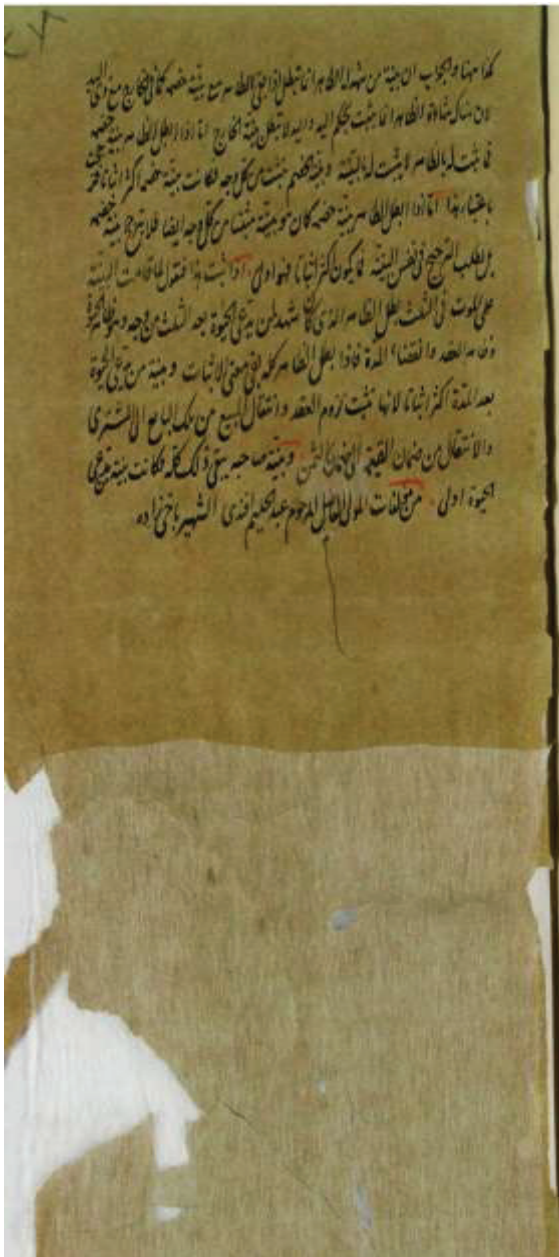 كذا ههنا والجواب ان بينة من شهد له الظاهر انما تبطل اذا بقى الظاهر مع بينة خصمه كما فى الخارج مع ذى اليد
لان هناك شهادة الظاهر انما يثبت بحكم اليد واليد لا تبطل بينة الخارج اما اذا بطل الظاهر بينة خصمه
فما ثبت له بالظاهر لا يثبت له بالبينة وبينة الخصم تثبت من كل وجه فكانت بينة خصمه اكثر اثباتا
باعتبار هذا اما اذا بطل الظاهر بينة خصمه كان هو بينة مثبتا من كل وجه ايضا فلا يترجح بينة خصمه
بل يطلب الترجيح فى نفس البينة فما يكون اكثر اثباتا فهو اولى اذا ثبت هذا فنقول لما قامت البينة
على الموت فى الثلث بطل الظاهر الذى كان شهد لمن يدعى الحيوة بعد الثلث من وجه وهو ظاهر الحيوة
وظاهر العقد وانقضاء المدة فاذا بطل الظاهر كله بقى معنى الاثبات وبينة من يدعى الحيوة
بعد المدة اكثر اثباتا لانها تثبت لزوم العقد وانتقال المبيع من ملك البايع الى المشترى
والانتقال من ضمان القيمة الى ضمان الثمن وبينة صاحبه ينفى ذلك كله فكانت بينة مدعى
الحيوة اولى من مؤلفات المولى الفاضل المرحوم عبد الحليم افندى الشهير باخى زاده